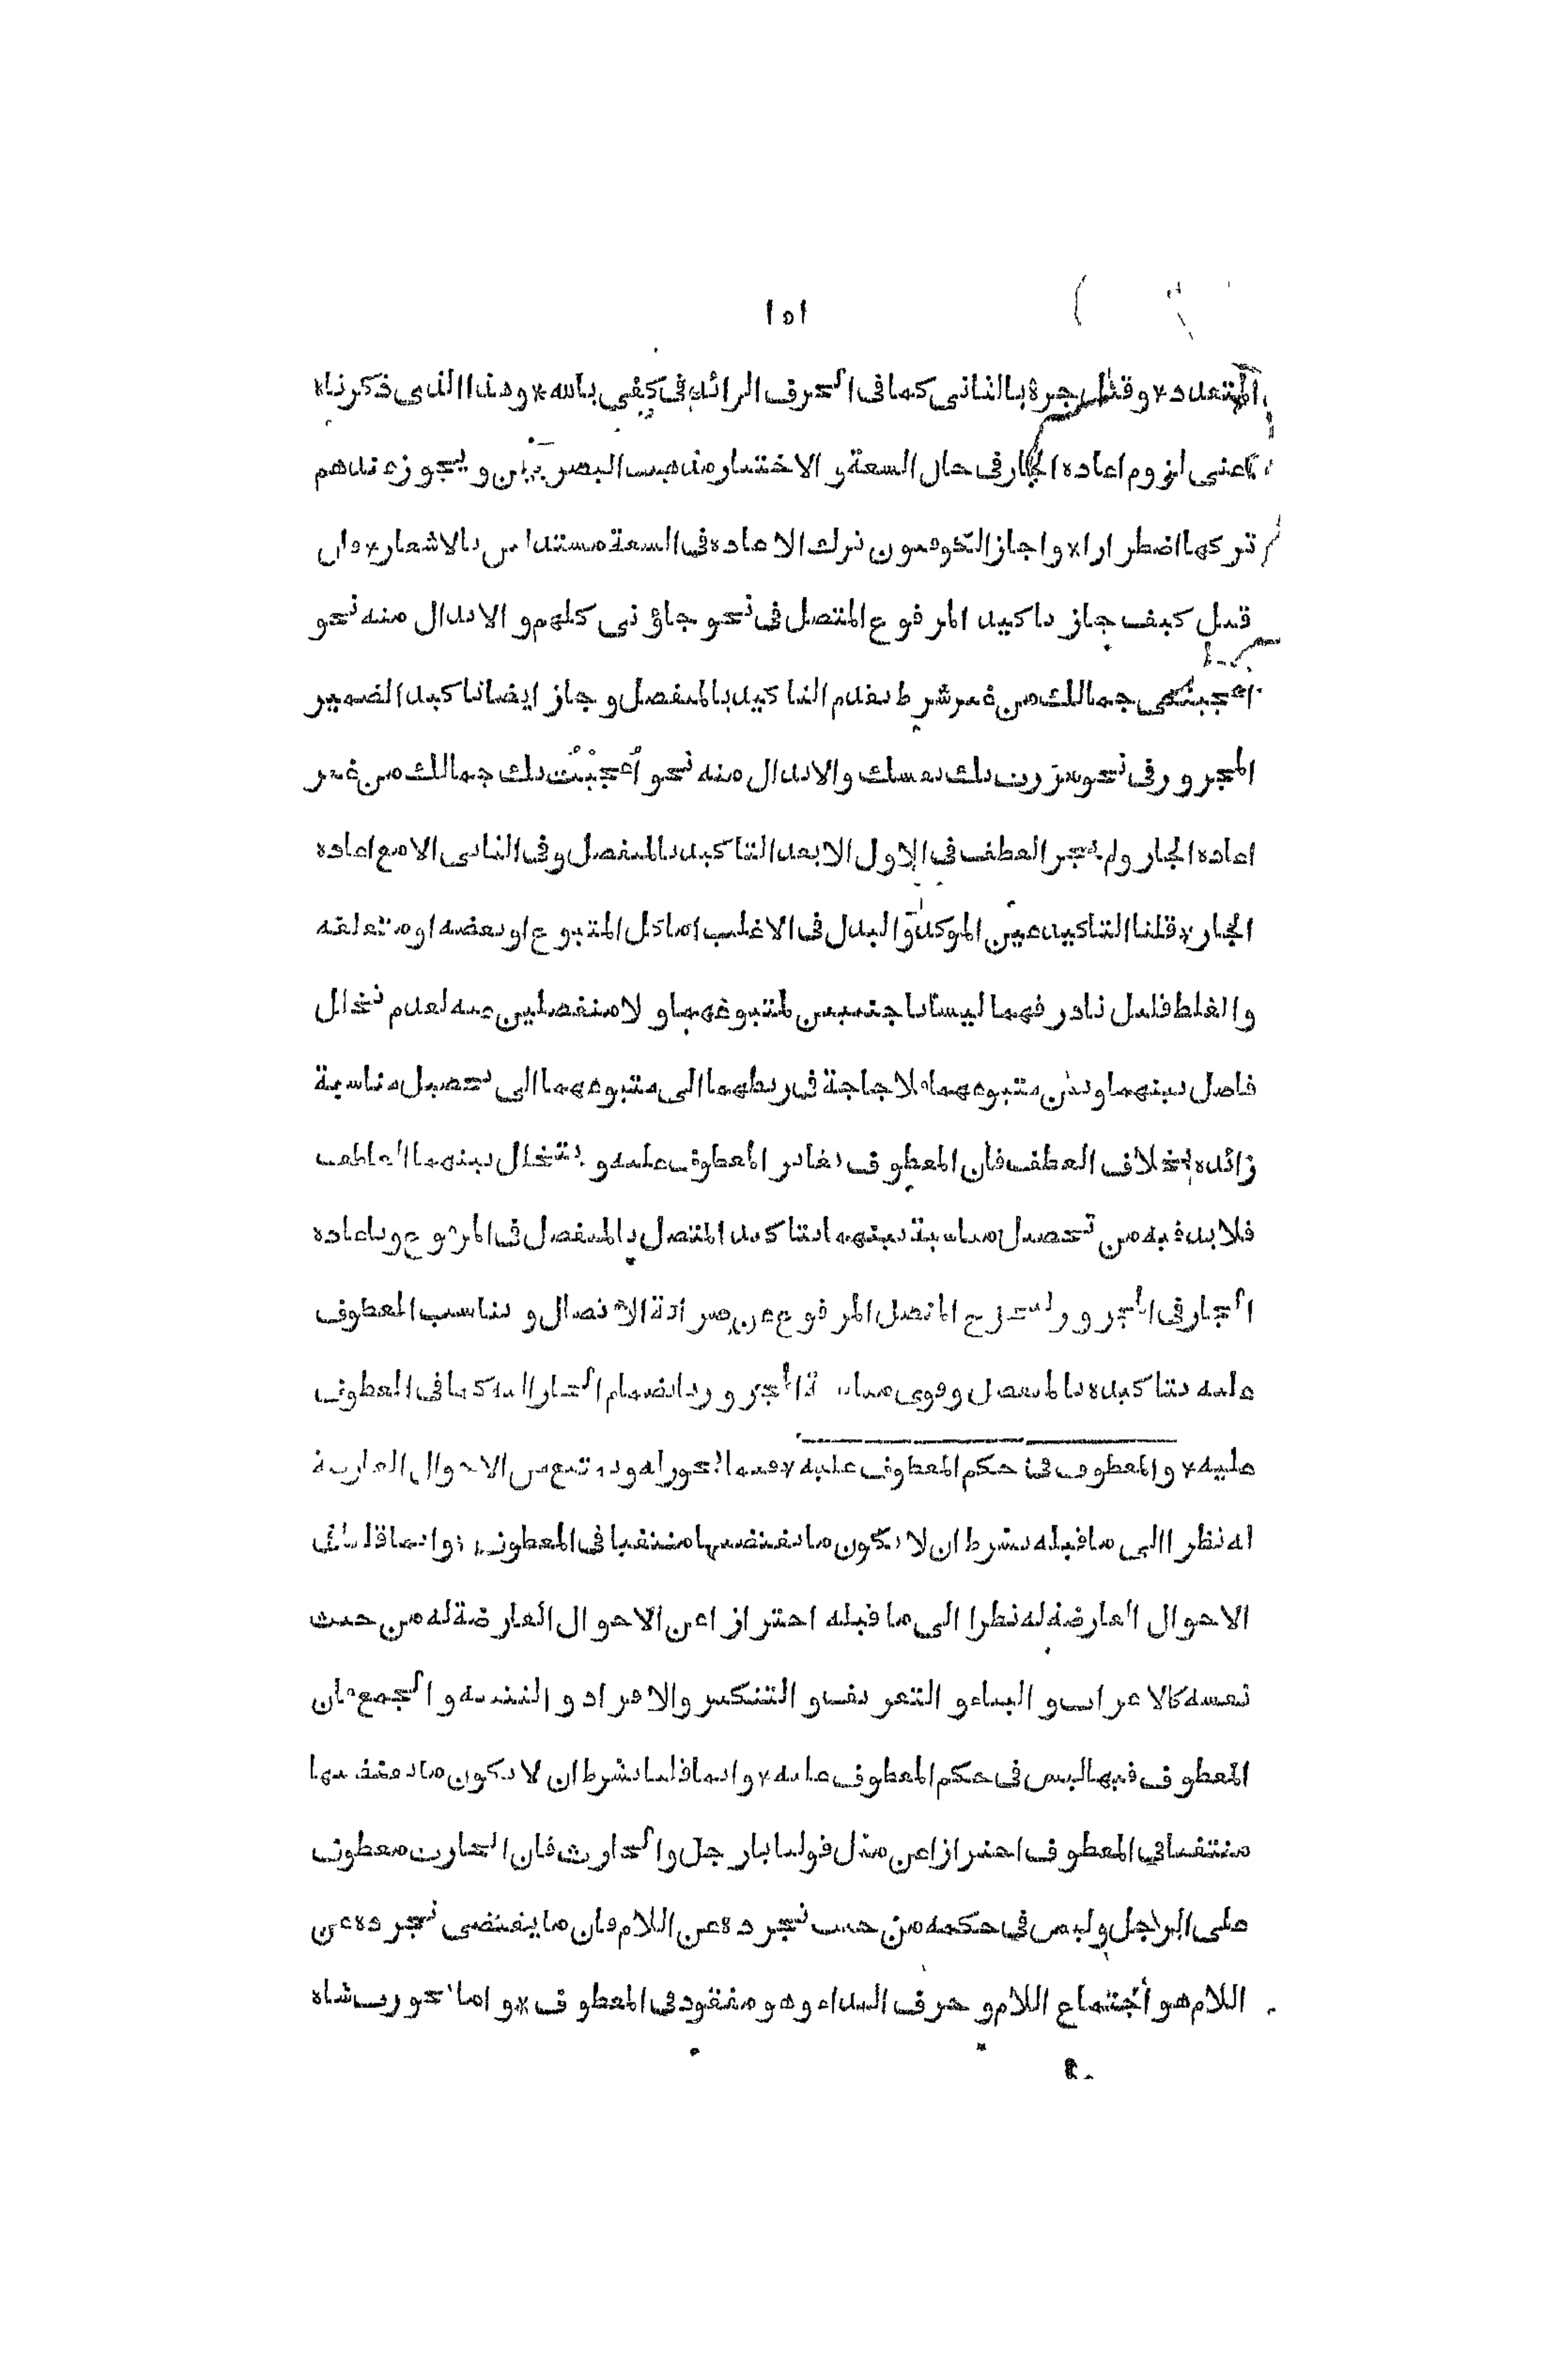 ١٥١
المتعدد * وقيل جره بالثاني كما في الحرف الزائد في كفى بالله * وهذا الذي ذكرناه
اعني لزوم اعادة الجار في حال السعة و الاختيار مذهب البصريين و يجوز عندهم
تركها اضطرارا * و اجاز الكوفيون ترك الاعادة في السعة مستدلين بالاشعار * فان
قيل كيف جاز تاكيد المرفوع المتصل في نحو جاؤني كلهم و الابدال منه نحو
اعجبتني جمالك من غير شرط تقدم التاكيد بالمنفصل و جاز ايضا تاكيد الضمير
المجرور في نحو مررت بك نفسك والابدال منه نحو أعجبْتُ بك جمالك من غير
اعادة الجار ولم يجز العطف في الاول الا بعد التاكيد بالمنفصل و في الثاني الا مع اعادة
الجار * قلنا التاكيد عين الموكد و البدل في الاغلب اما كل المتبوع او بعضه او متعلقه
و الغلط قليل نادر فهما ليسا باجنبيين لمتبوعهما و لا منفصلين عنه لعدم تخلل
فاصل بينهما و بين متبوعهما فلا حاجة في ربطهما الى متبوعهما الى تحصيل مناسبة
زائدة بخلاف العطف فان المعطوف يغاير المعطوف عليه و يتخلل بينهما العاطف
فلا بد فيه من تحصيل مناسبة بينهما بتاكيد المتصل بالمنفصل في المرفوع و باعادة
الجار في المجرور ليخرج المتصل المرفوع عن صرافة الاتصال و يناسب المعطوف
عليه بتاكيده بالمنفصل و قوي مناسبة المجرور بانضمام الجار اليه كما في المعطوف
عليه * و المعطوف في حكم المعطوف عليه * فيما يجوز له و يمتنع من الاحوال العارضة
له نظرا الى ما قبله بشرط ان لا يكون ما يقتضيها منتفيا في المعطوف * و انما قلنا في
الاحوال العارضة له نظرا الى ما قبله احترازا عن الاحوال العارضة له من حيث
نفسه كالاعراب و البناء و التعريف و التنكير و الافراد و التثنيه و الجمع فان
المعطوف فيها ليس في حكم المعطوف عليه * و انما قلنا بشرط ان لا يكون ما يقتضيها
منتفيا في المعطوف احترازا عن مثل قولنا يا رجل و الحارث فان الحارث معطوف
على الرجل و ليس في حكمه من حيث تجرده عن اللام فان ما يقتضي تجرده عن
اللام هو أجتماع اللام و حرف النداء و هو مفقود في المعطوف * و اما نحو رب شاة